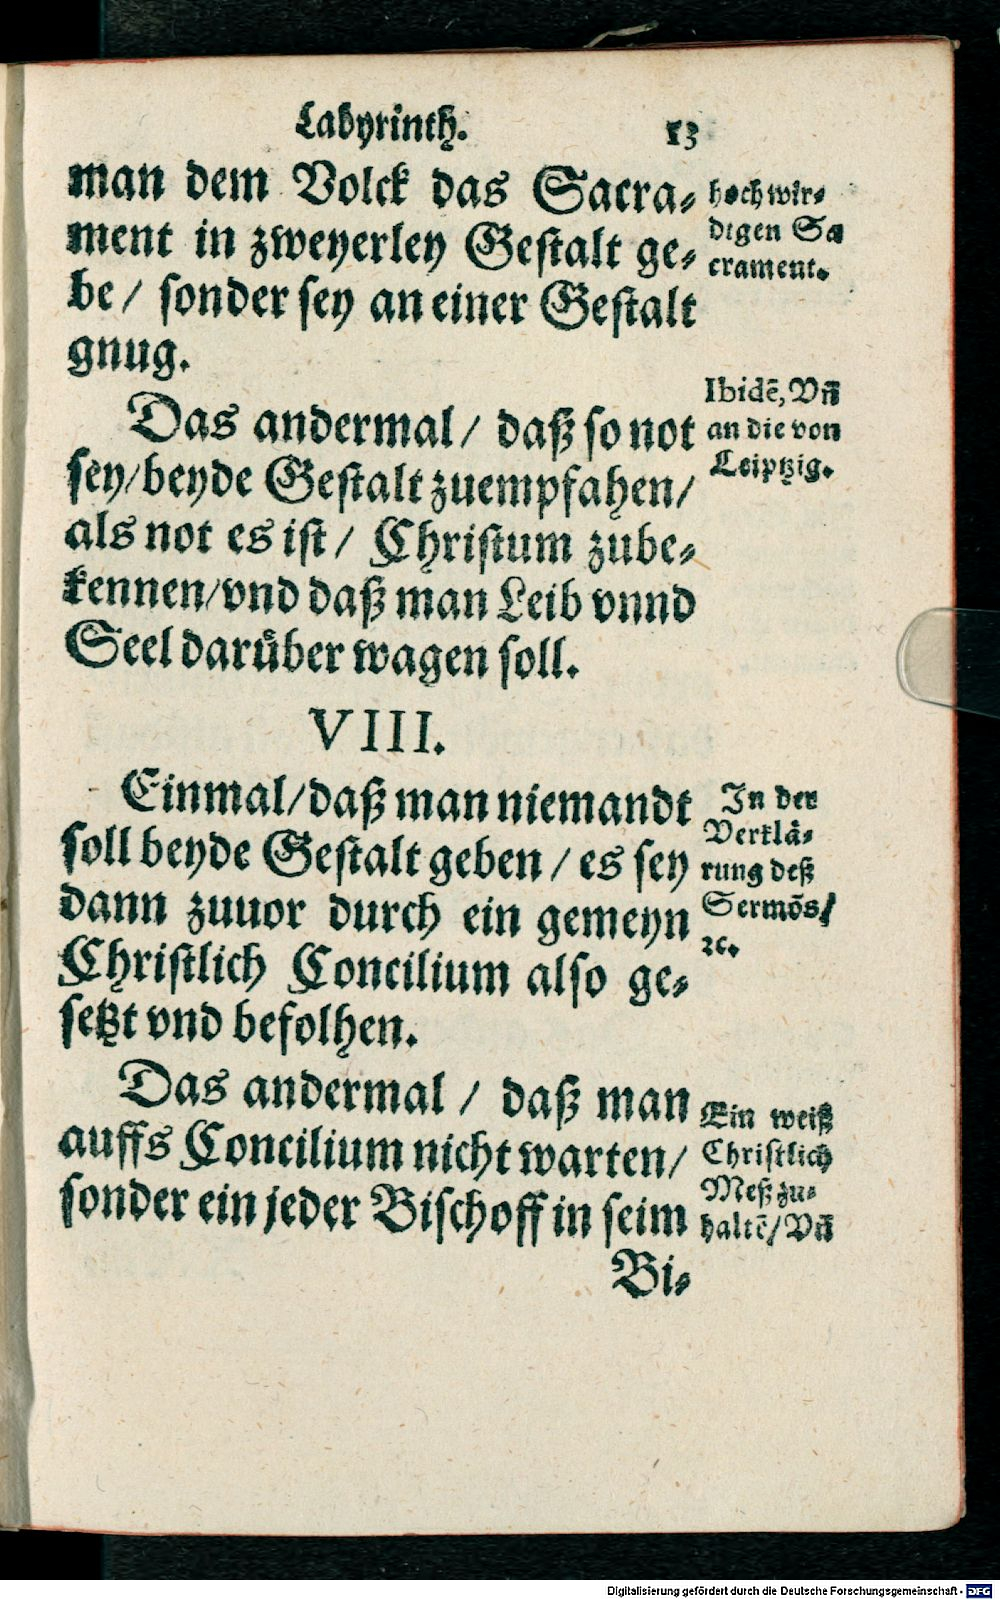 Labyrinth. 13
man dem Volck das Sacra⸗
ment in zweyerley Gestalt ge⸗
be / sonder sey an einer Gestalt
gnug.
hochwir⸗
digen Sa
crament.
Das andermal / daß so not
sey/beyde Gestalt zuempfahen/
als not es ist / Christum zube⸗
kennen/vnd daß man Leib vnnd
Seel darüber wagen soll.
Ibidē, Vñ
an die von
Leiptzig.
VIII.
Einmal/daß man niemandt
soll beyde Gestalt geben / es sey
dann zuuor durch ein gemeyn
Christlich Concilium also ge⸗
setzt vnd befolhen.
In der
Verklä⸗
rung deß
Sermōs/
ꝛc.
Das andermal / daß man
auffs Concilium nicht warten/
sonder ein jeder Bischoff in seim
Ein weiß
Christlich
Meß zu⸗
haltē/ Vñ
Bi⸗
Digitalisierung gefördert durch die Deutsche Forschungsgemeinschaft - DFG